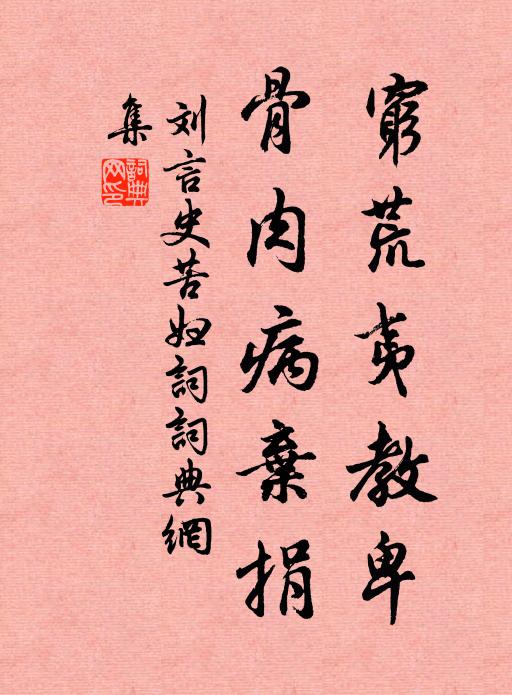 窮荒夷教卑
骨肉病棄捐
刘言史苦妝詞詞典網
集
詞典網印